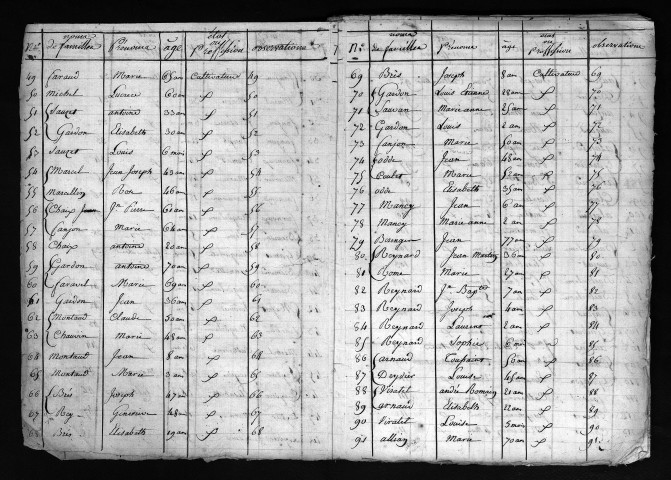 N.os noms de familles Prénoms âge état ou Profession observations
49 Garaud Marie 65 an Cultivateur 49
50 Michel Lucrece 60 an 50
51 Sauzet antoine 33 an 51
52 Gardon Elisabeth 30 an 52
53 Sauzet Louis 6 moi 53
54 Marcel Jean Joseph 43 an 54
55 Marcellin Rose 46 an 55
56 Chaix J.n Pierre 61 an 56
57 Janjon Marie 64 an 57
58 Chaix antoine 20 an 58
59 Gardon antoine 70 an 59
60 Garavel Marie 69 an 60
61 Gardon Jean 36 an 61
62 Montaud Claude 50 an 62
63 Chauvin Marie 48 an 63
64 Montaud Jean 8 an 64
65 Montaud Marie 3 an 65
66 Bris Joseph 47 an 66
67 Rey Genevieve 48 an 67
68 Bris Elisabeth 19 an 68
N.os noms de familles Prénoms âge état ou Profession observations
69 Bris Joseph 8 an Cultivateur 69
70 Gardon Louis Etienne 28 an 70
71 Sauvan Marie anne 25 an 71
72 Gardon Louis 2 an 72
73 Janjon Marie 50 an 73
74 odde Jean 48 an 74
75 Marie 52 an 75
76 odde Elisabeth 35 an 76
77 Mancy Jean 6 an 77
78 Mancy Marie anne 2 an 78
79 Jean 77 an 79
80 Reynard Jean 36 an 80
81 Rome Marie 27 an 81
82 Reynard J.n Bap.te 7 an 82
83 Reynard Joseph 4 an 83
84 Reynard Laurent 2 an 84
85 Reynard Sophie 85
86 arnaud Toussaint 50 an 86
87 Deydier Louise 45 an 87
88 Viralet andré Romain 21 an 88
89 arnaud Elisabeth 22 an 89
90 Viralet Louise 5 moi 90
91 Marie 70 an 91